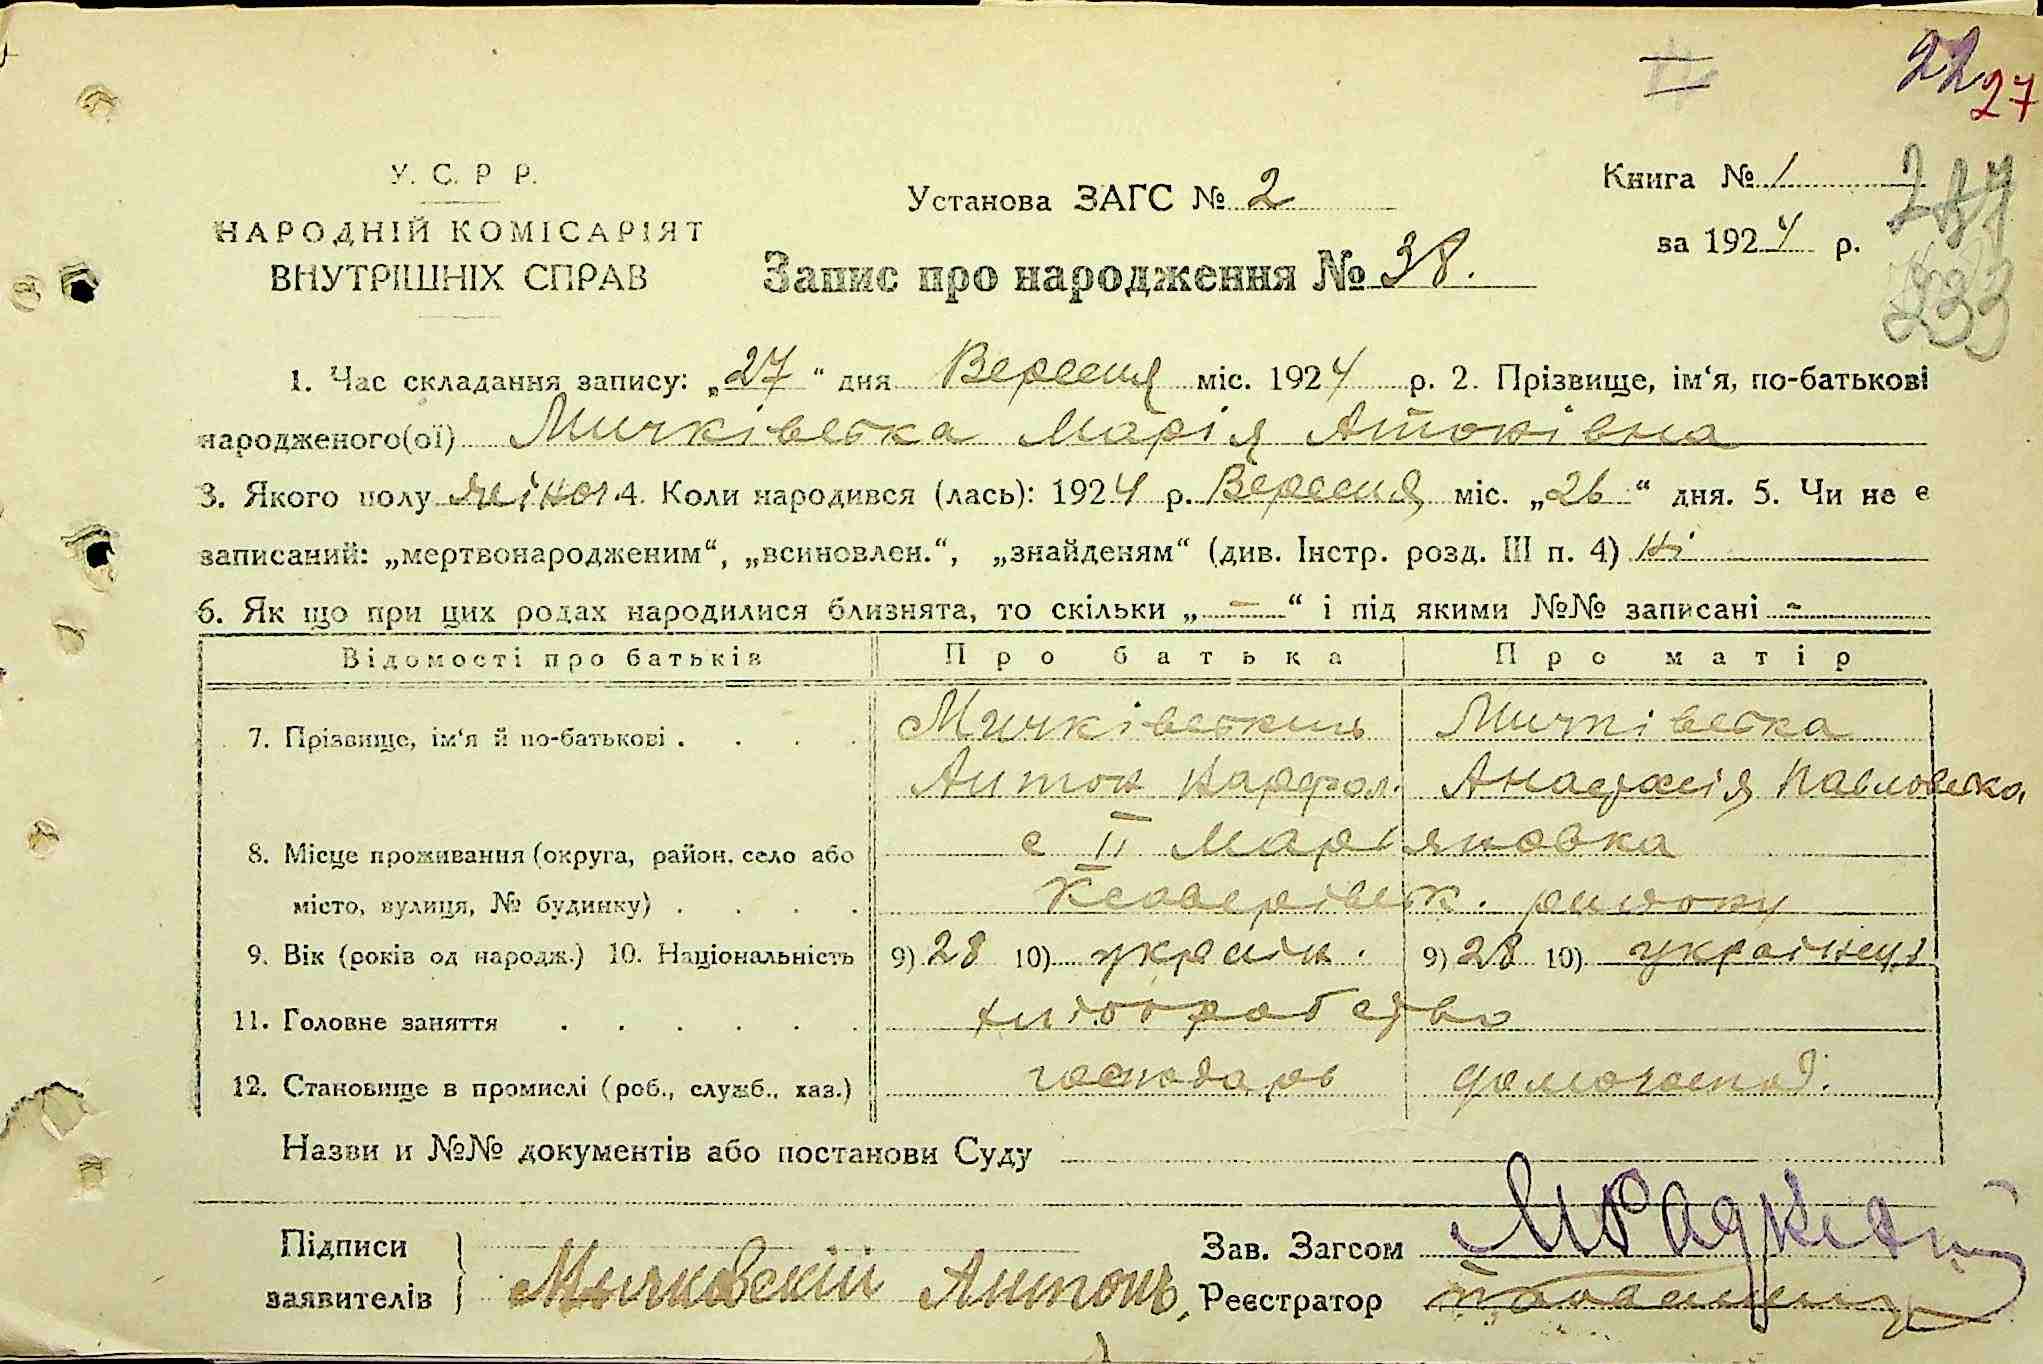 II
22
27
У. С. Р Р.
Установа ЗАГС № 2
Книга № 1
НАРОДНІЙ КОМІСАРІЯТ
за 1924 р.
ВНУТРІШНІХ СПРАВ
Запис про народження № 38.
233
1. Час складання запису: „27“ дня Вересня міс. 1924 р. 2. Прізвище, ім‘я, по-батькові
народженого(ої) Мичківська Марія Антонівна
3. Якого полу жіноч. 4. Коли народився (лась): 1924 р. Вересня міс. „26“ дня. 5. Чи не є
записаний: „мертвонародженим“, „всиновлен.“, „знайденям“ (див. Інстр. розд. III п. 4) ні
6. Як що при цих родах народилися близнята, то скільки „ — “ і під якими №№ записані -
Відомості про батьків Про батька Про матір
7. Прізвище, ім‘я й по-батькові . . . . Мичківський Мичківська
Антон Парфол. Анастасія Павловска
8. Місце проживання (округа, район, село або с II Мар'яновка
місто, вулиця, № будинку) . . . . району
9. Вік (років од народж.) 10. Національність 9) 28 10) україн. 9) 28 10) українец
11. Головне заняття . . . . . . хліборобство
12. Становище в промислі (роб., служб., хаз.) господарь домогоспод.
Назви и №№ документів або постанови Суду
Підписи
заявителів } Мычковскій Антонъ,
Зав. Загсом
Реєстратор